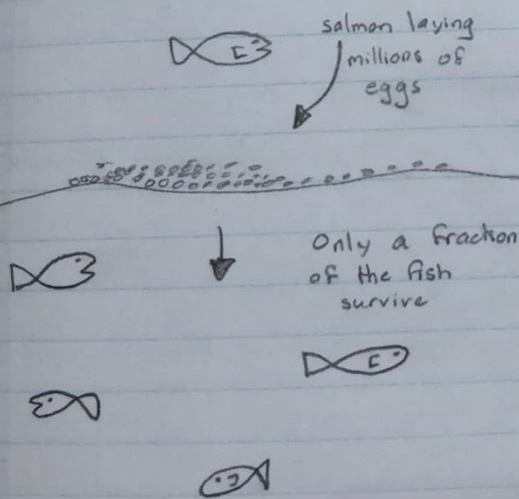 salmon laying
millions of
eggs
Only a fraction
of the fish
survive